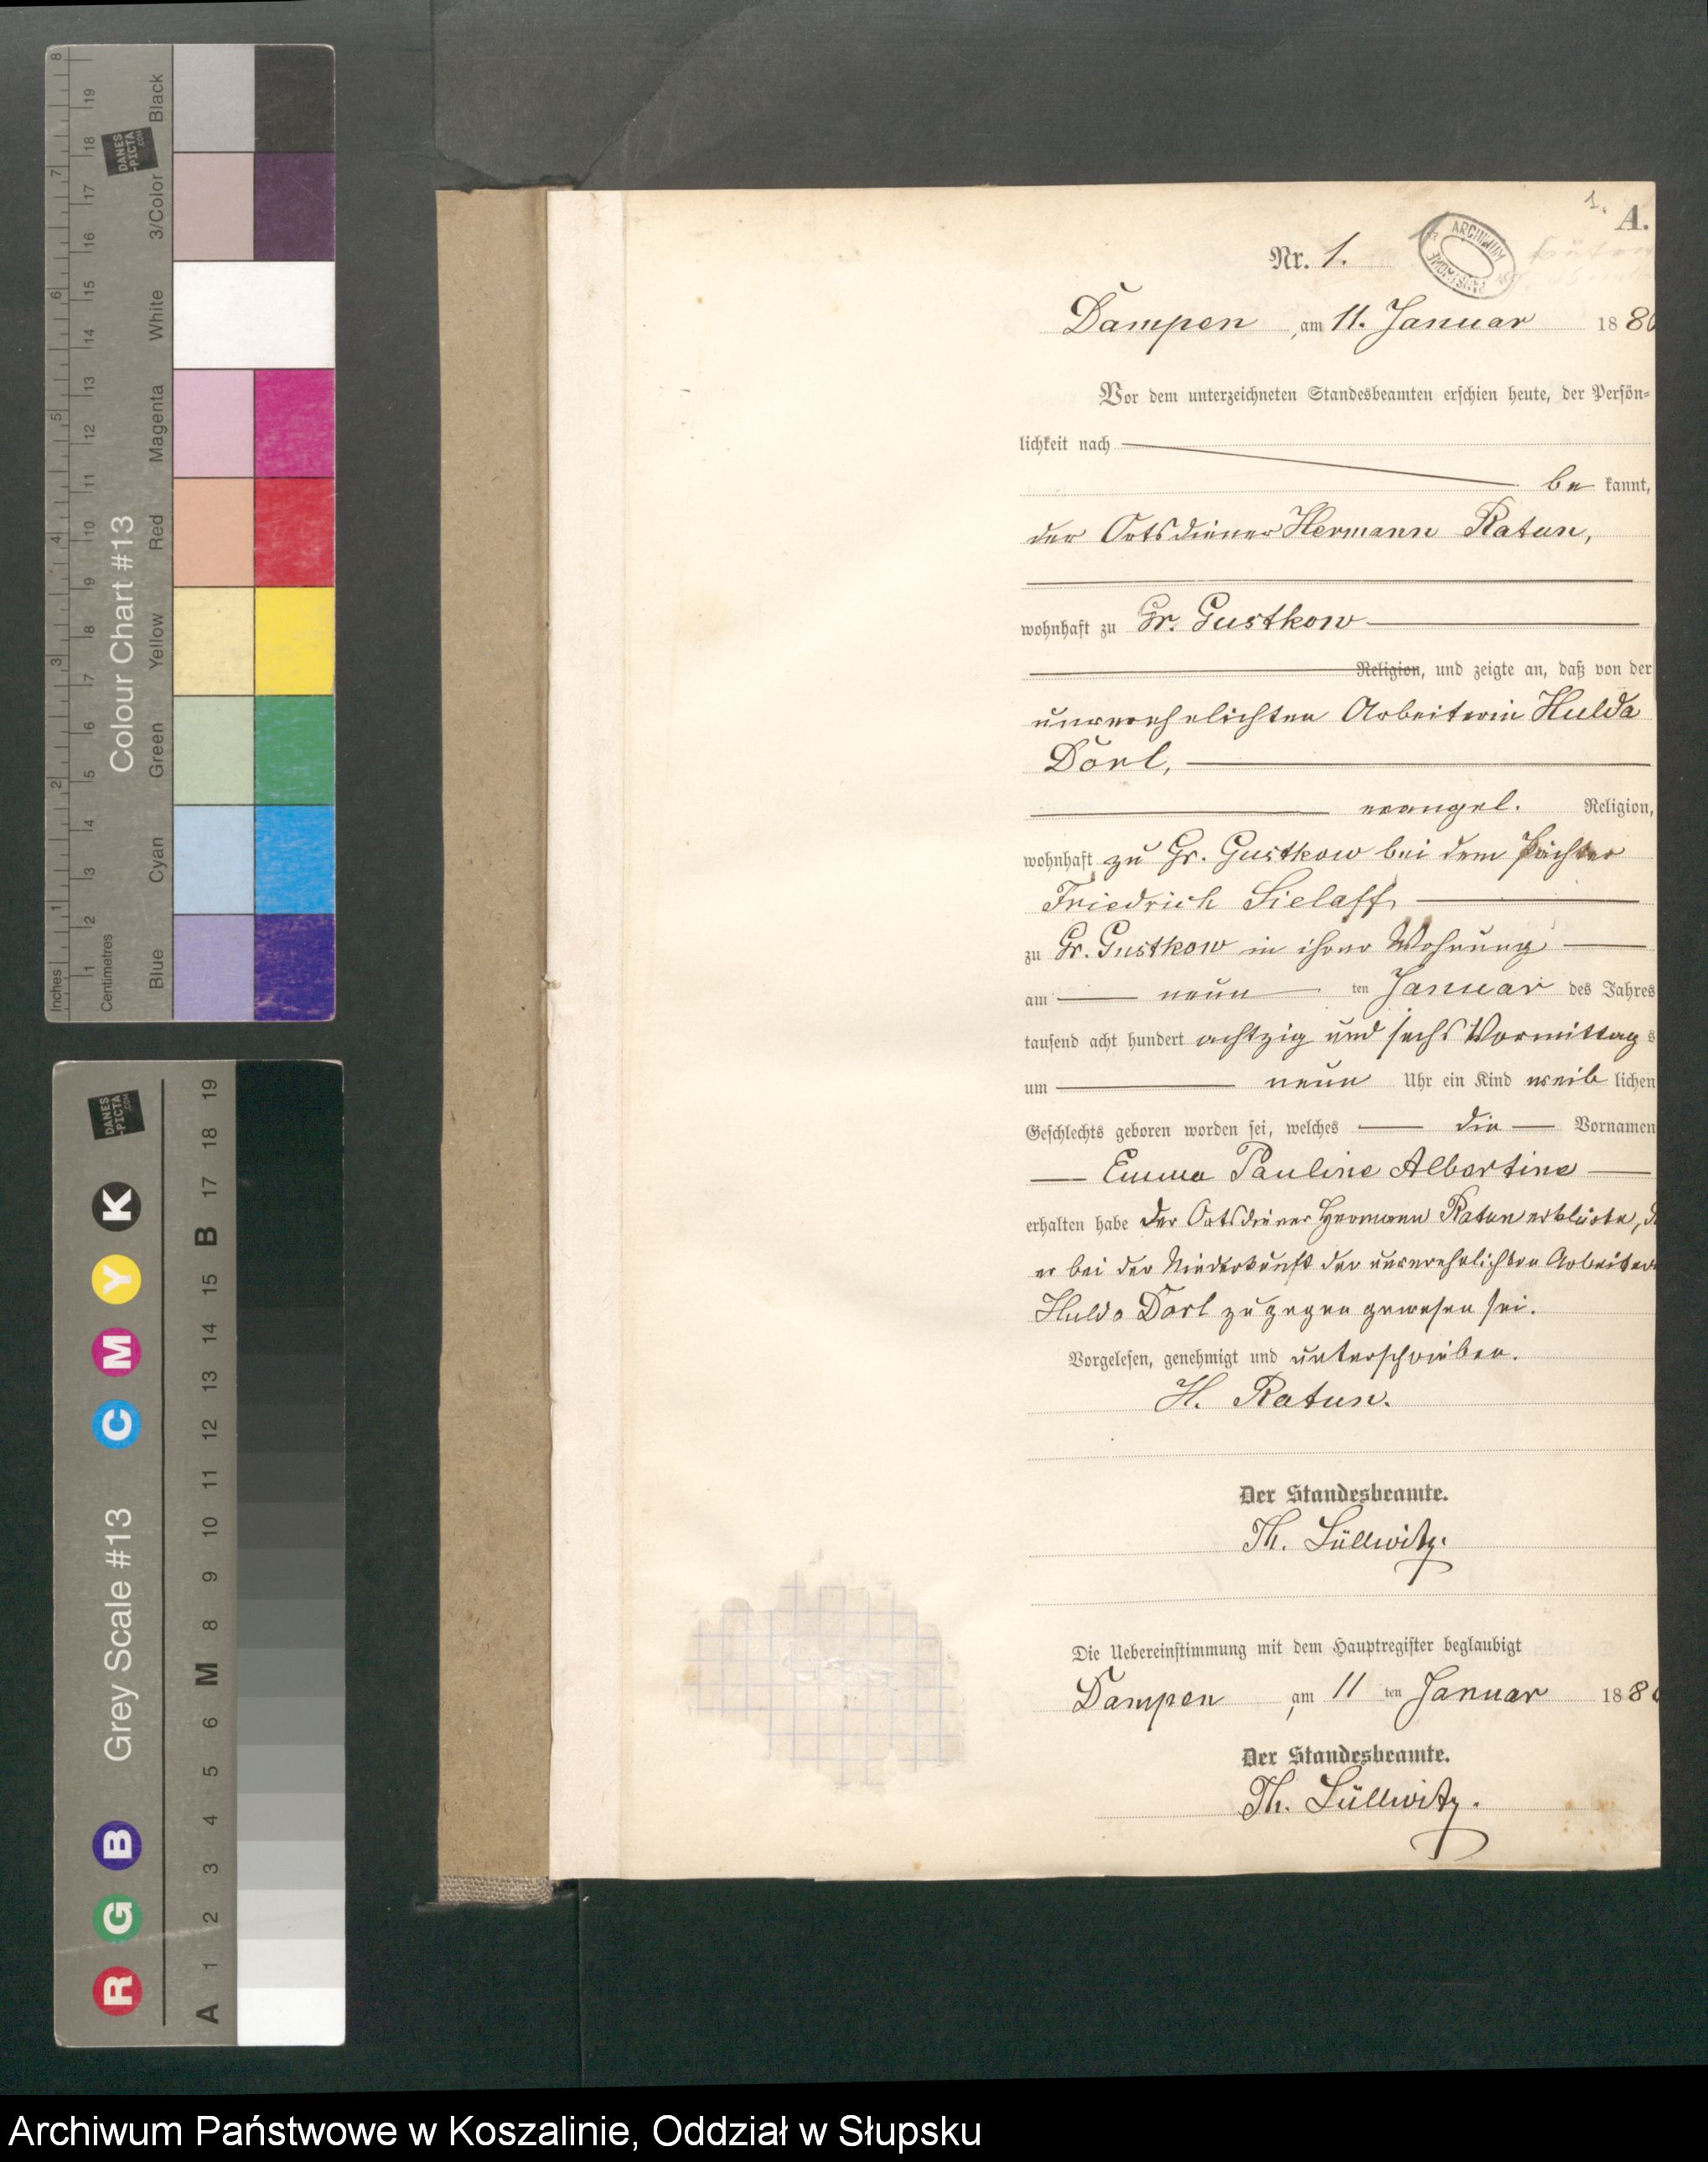 1.
A.
Nr. 1.
ARCHIWUM
Dampen, am 11. Januar 188
Vor dem unterzeichneten Standesbeamten erschien heute, der Persön=
lichkeit nach
be kannt,
der Ortsdiener Hermann Ratun,
wohnhaft zu Gr. Gustkow
Religion, und zeigte an, daß von der
unverehelichten Arbeiterin Hulda
Dorl,
evangel. Religion,
wohnhaft zu Gr. Gustkow bei dem Pächter
Friedrich Sielaff,
zu Gr. Gustkow in ihrer Wohnung
am neun ten Januar des Jahres
tausend acht hundert achtzig und sechs Vormittag s
um neun Uhr ein Kind weib lichen
Geschlechts geboren worden sei, welches die Vornamen
Emma Pauline Albertine
erhalten habe der Ortsdiener Hermann Ratun erklärte, d
er bei der Niederkunft der unverehelichten Arbeiter
Hulda Dorl zugegen gewesen sei.
Vorgelesen, genehmigt und unterschrieben.
H. Ratun.
Der Standesbeamte.
Th. Lüllwitz.
Die Uebereinstimmung mit dem Hauptregister beglaubigt
Dampen, am 11 ten Januar 188
Der Standesbeamte.
Th. Lüllwitz.
Inches 1 2 3 4 5 6 7 8
Centimetres 1 2 3 4 5 6 7 8 9 10 11 12 13 14 15 16 17 18 19
Colour Chart #13
DANES
-PICTA
.COM
Blue Cyan Green Yellow Red Magenta White 3/Color Black
DANES
-PICTA
.COM
R G B Grey Scale #13 C M Y K
A 1 2 3 4 5 6 M 8 9 10 11 12 13 14 15 B 17 18 19
Archiwum Państwowe w Koszalinie, Oddział w Słupsku